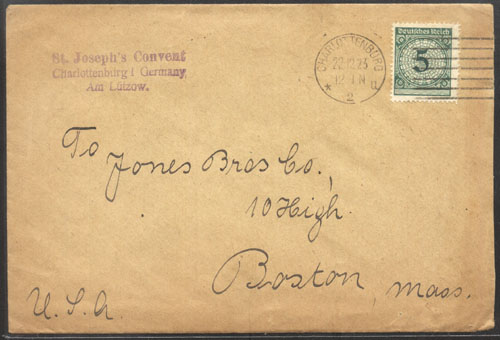 St. Joseph's Convent
Charlottenburg I Germany
Am Lützow.
CHARLOTTENBURG
12.23
2
Deutsches Reich
5
To Jones Bros Co.,
10 High.
Boston, Mass.
U.S.A.